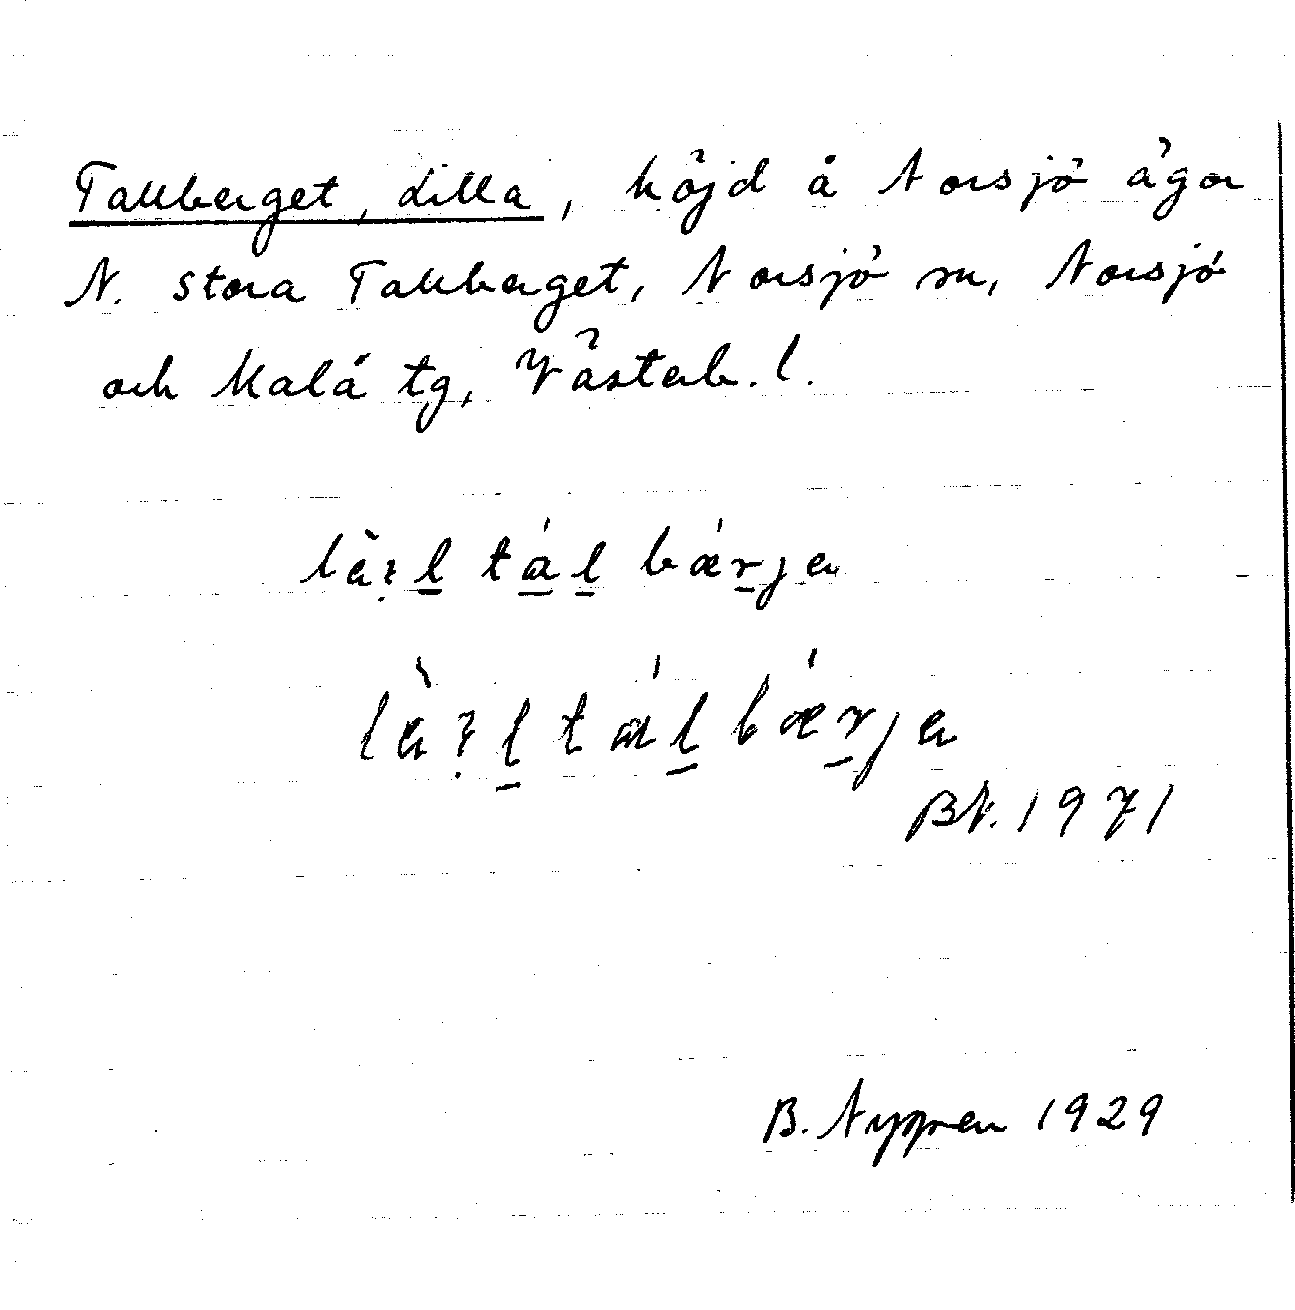 Tallberget, Lilla, höjd å Norsjö ägor
N. Stora Tallberget, Norsjö sn, Norsjö
och Malå tg, Västerb. l.
là2̣l̲ tá̲l̲ bǽr̲ja
là2̣l̲ tál̲ bǽr̲ja
BN. 1971
B. Nygren 1929